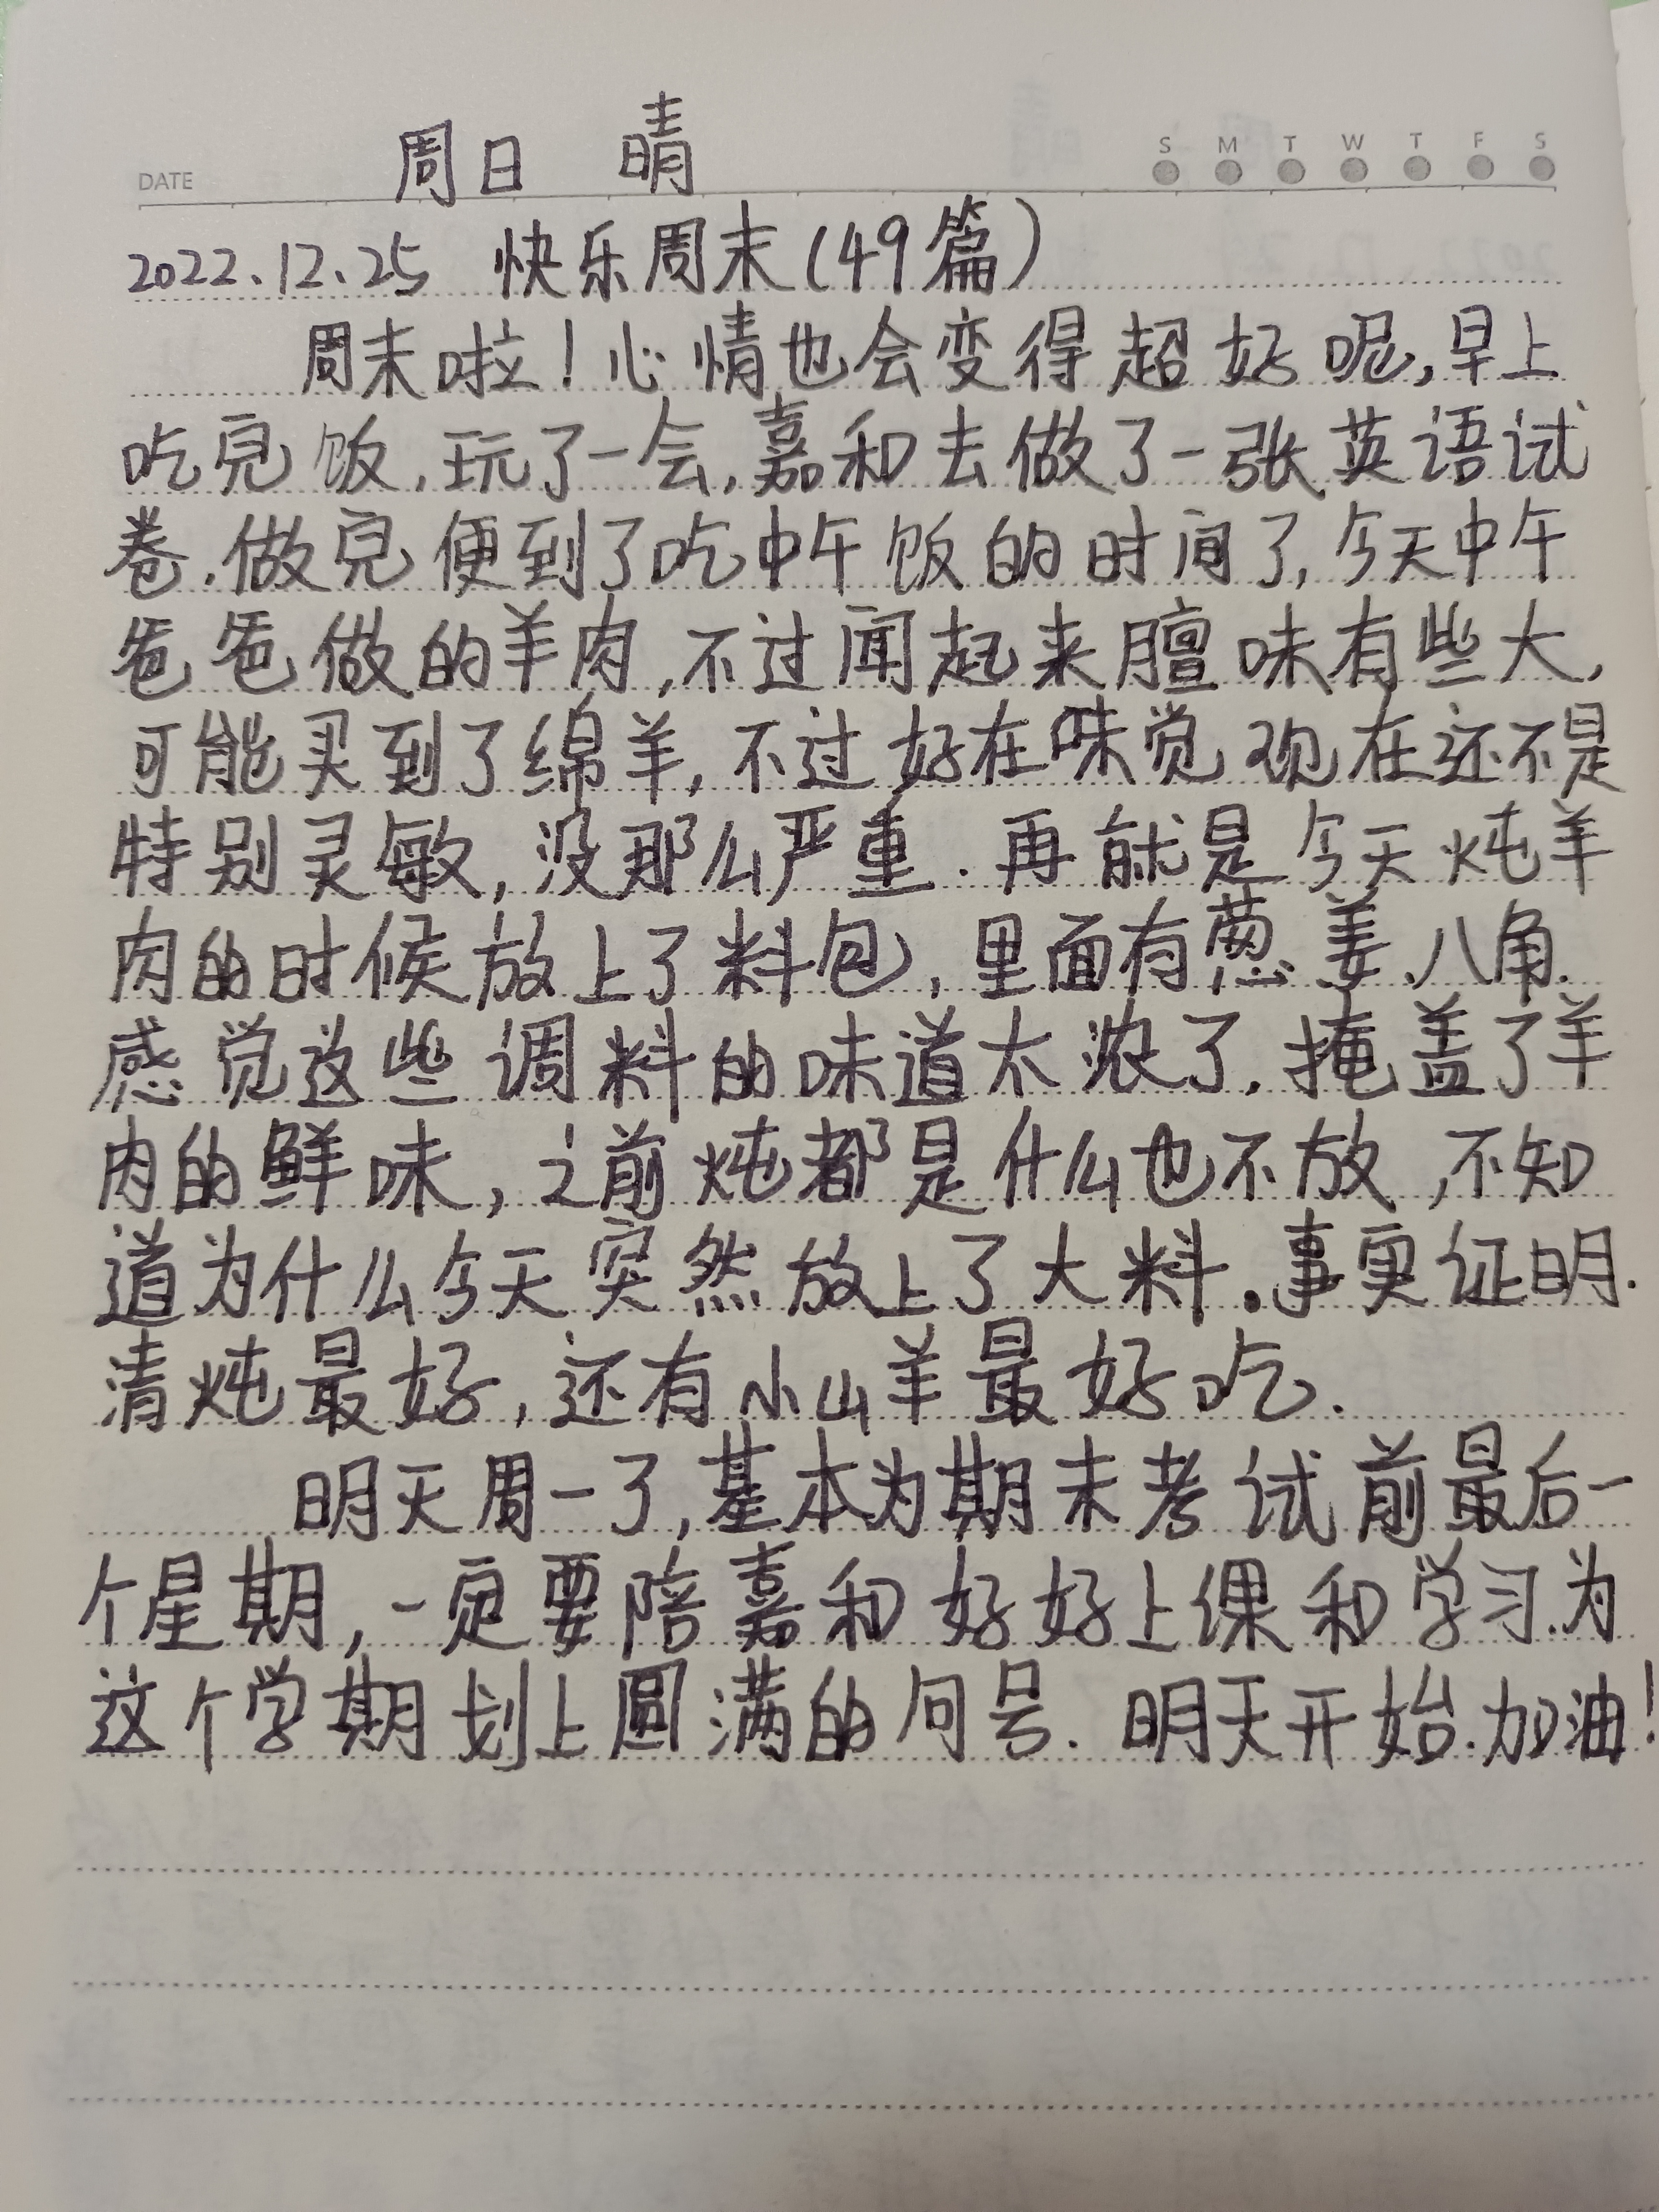 周日 晴
DATE
S M T W T F S
2022.12.25 快乐周末(49篇)
周末啦!心情也会变得超好呢,早上
吃完饭,玩了一会,嘉和去做了一张英语试
卷.做完便到了吃中午饭的时间了,今天中午
爸爸做的羊肉,不过闻起来膻味有些大,
可能买到了绵羊,不过好在味觉现在还不是
特别灵敏,没那么严重.再就是今天炖羊
肉的时候放上了料包,里面有葱、姜、八角.
感觉这些调料的味道太浓了,掩盖了羊
肉的鲜味,之前炖都是什么也不放,不知
道为什么今天突然放上了大料.事实证明.
清炖最好,还有小山羊最好吃.
明天周一了,基本为期末考试前最后一
个星期,一定要陪嘉和好好上课和学习.为
这个学期划上圆满的句号.明天开始.加油!